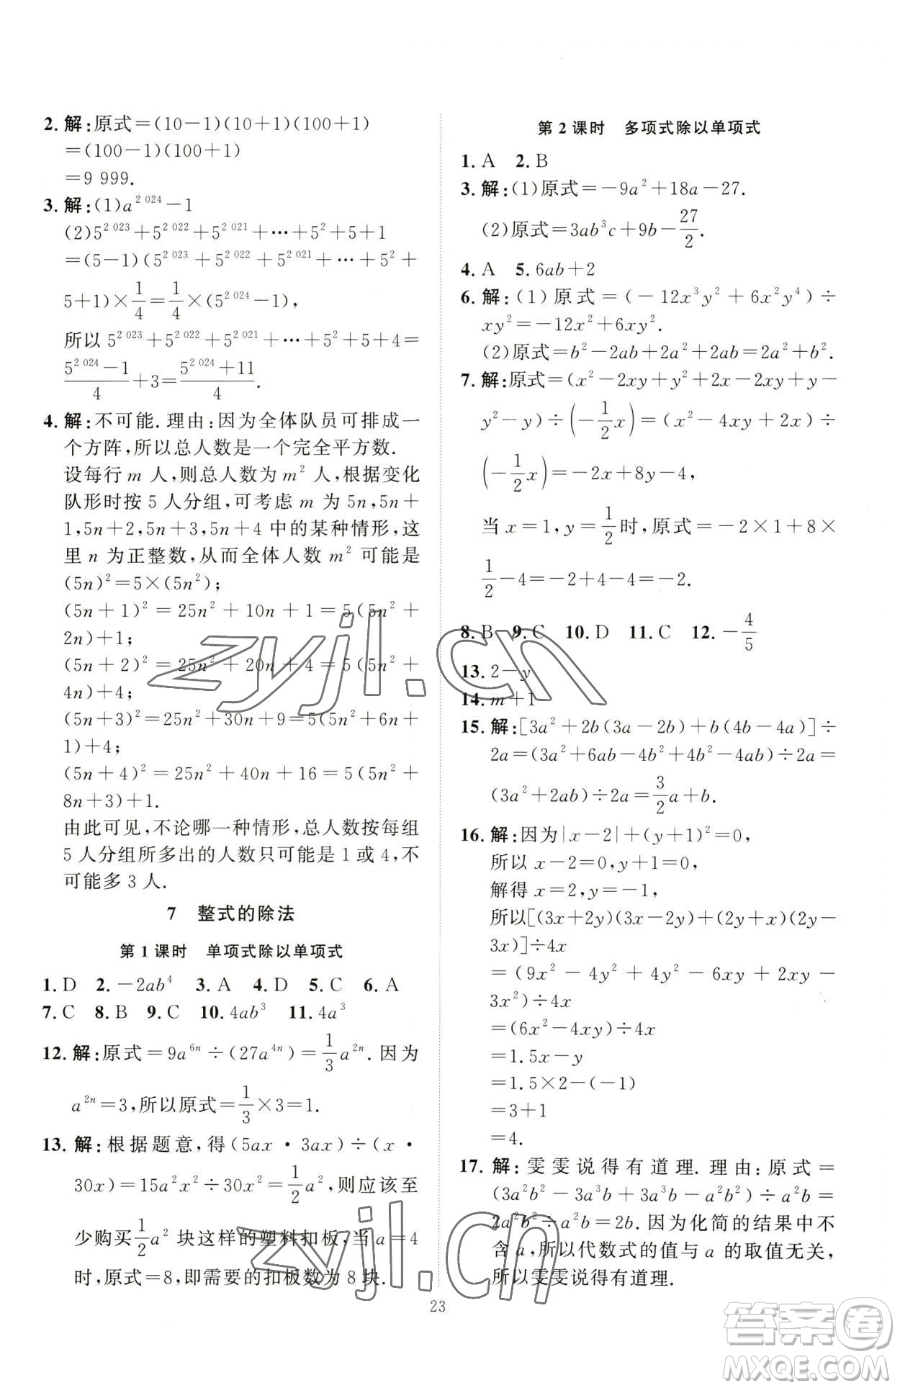 2. 解:原式=(10-1)(10+1)(100+1)
=(100-1)(100+1)
=9 999.
3. 解:(1)a^{2 024}-1
(2)5^{2 023}+5^{2 022}+5^{2 021}+…+5^2+5+1
=(5-1)(5^{2 023}+5^{2 022}+5^{2 021}+…+5^2+
5+1)×1/4=1/4×(5^{2 024}-1),
所以 5^{2 023}+5^{2 022}+5^{2 021}+…+5^2+5+4=
(5^{2 024}-1)/4+3=(5^{2 024}+11)/4.
4. 解:不可能. 理由:因为全体队员可排成一
个方阵,所以总人数是一个完全平方数.
设每行 m 人,则总人数为 m^2 人,根据变化
队形时按 5 人分组,可考虑 m 为 5n,5n+
1,5n+2,5n+3,5n+4 中的某种情形,这
里 n 为正整数,从而全体人数 m^2 可能是
(5n)^2=5×(5n^2);
(5n+1)^2=25n^2+10n+1=5(5n^2+
2n)+1;
(5n+2)^2=25n^2+20n+4=5(5n^2+
4n)+4;
(5n+3)^2=25n^2+30n+9=5(5n^2+
6n+1)+4;
(5n+4)^2=25n^2+40n+16=5(5n^2+
8n+3)+1.
由此可见,不论哪一种情形,总人数按每组
5 人分组所多出的人数只可能是 1 或 4,不
可能多 3 人.
7 整式的除法
第 1 课时 单项式除以单项式
1. D 2. -2ab^4 3. A 4. D 5. C 6. A
7. C 8. B 9. C 10. 4ab^3 11. 4a^3
12. 解:原式=9a^{6n}÷(27a^{4n})=1/3a^{2n}. 因为
a^{2n}=3,所以原式=1/3×3=1.
13. 解:根据题意,得(5ax·3ax)÷(x·
30x)=15a^2x^2÷30x^2=1/2a^2,则应该至
少购买1/2a^2 块这样的塑料扣板,当 a=4
时,原式=8,即需要的扣板数为 8 块.
第 2 课时 多项式除以单项式
1. A 2. B
3. 解:(1)原式=-9a^2+18a-27.
(2)原式=3ab^3c+9b-27/2.
4. A 5. 6ab+2
6. 解:(1)原式=(-12x^3y^2+6x^2y^4)÷
xy^2=-12x^2+6xy^2.
(2)原式=b^2-2ab+2a^2+2ab=2a^2+b^2.
7. 解:原式=(x^2-2xy+y^2+x^2-2xy+y-
y^2-y)÷(-1/2x)=(2x^2-4xy+2x)÷
(-1/2x)=-2x+8y-4,
当 x=1,y=1/2时,原式=-2×1+8×
1/2-4=-2+4-4=-2.
8. B 9. C 10. D 11. C 12. -4/5
13. 2-y
14. m+1
15. 解:[3a^2+2b(3a-2b)+b(4b-4a)]÷
2a=(3a^2+6ab-4b^2+4b^2-4ab)÷2a=
(3a^2+2ab)÷2a=3/2a+b.
16. 解:因为|x-2|+(y+1)^2=0,
所以 x-2=0,y+1=0,
解得 x=2,y=-1,
所以[(3x+2y)(3x-2y)+(2y+x)(2y-
3x)]÷4x
=(9x^2-4y^2+4y^2-6xy+2xy-
3x^2)÷4x
=(6x^2-4xy)÷4x
=1.5x-y
=1.5×2-(-1)
=3+1
=4.
17. 解:雯雯说得有道理. 理由:原式=
(3a^2b^2-2a^2b^2+a^2b^2)÷a^2b=
2a^2b^2÷a^2b=2b. 因为化简的结果中不
含 a,所以代数式的值与 a 的取值无关,
所以雯雯说得有道理.
23
zyjl.cn
zyjl.cn
答案圈
MXQE.COM